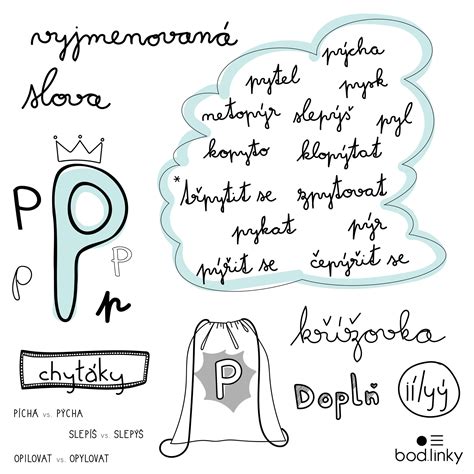 vyjmenovaná
slova
pýcha
pytel pysk
netopýr slepýš pyl
kopyto klopýtat
* třpytit se zpytovat
pykat pýr
pýřit se čepýřit se
P P
P p
P
křížovka
chytáky
Doplň ií/yý
PÍCHA vs. PÝCHA
SLEPÍŠ vs. SLEPÝŠ
OPILOVAT vs. OPYLOVAT
bod.linky